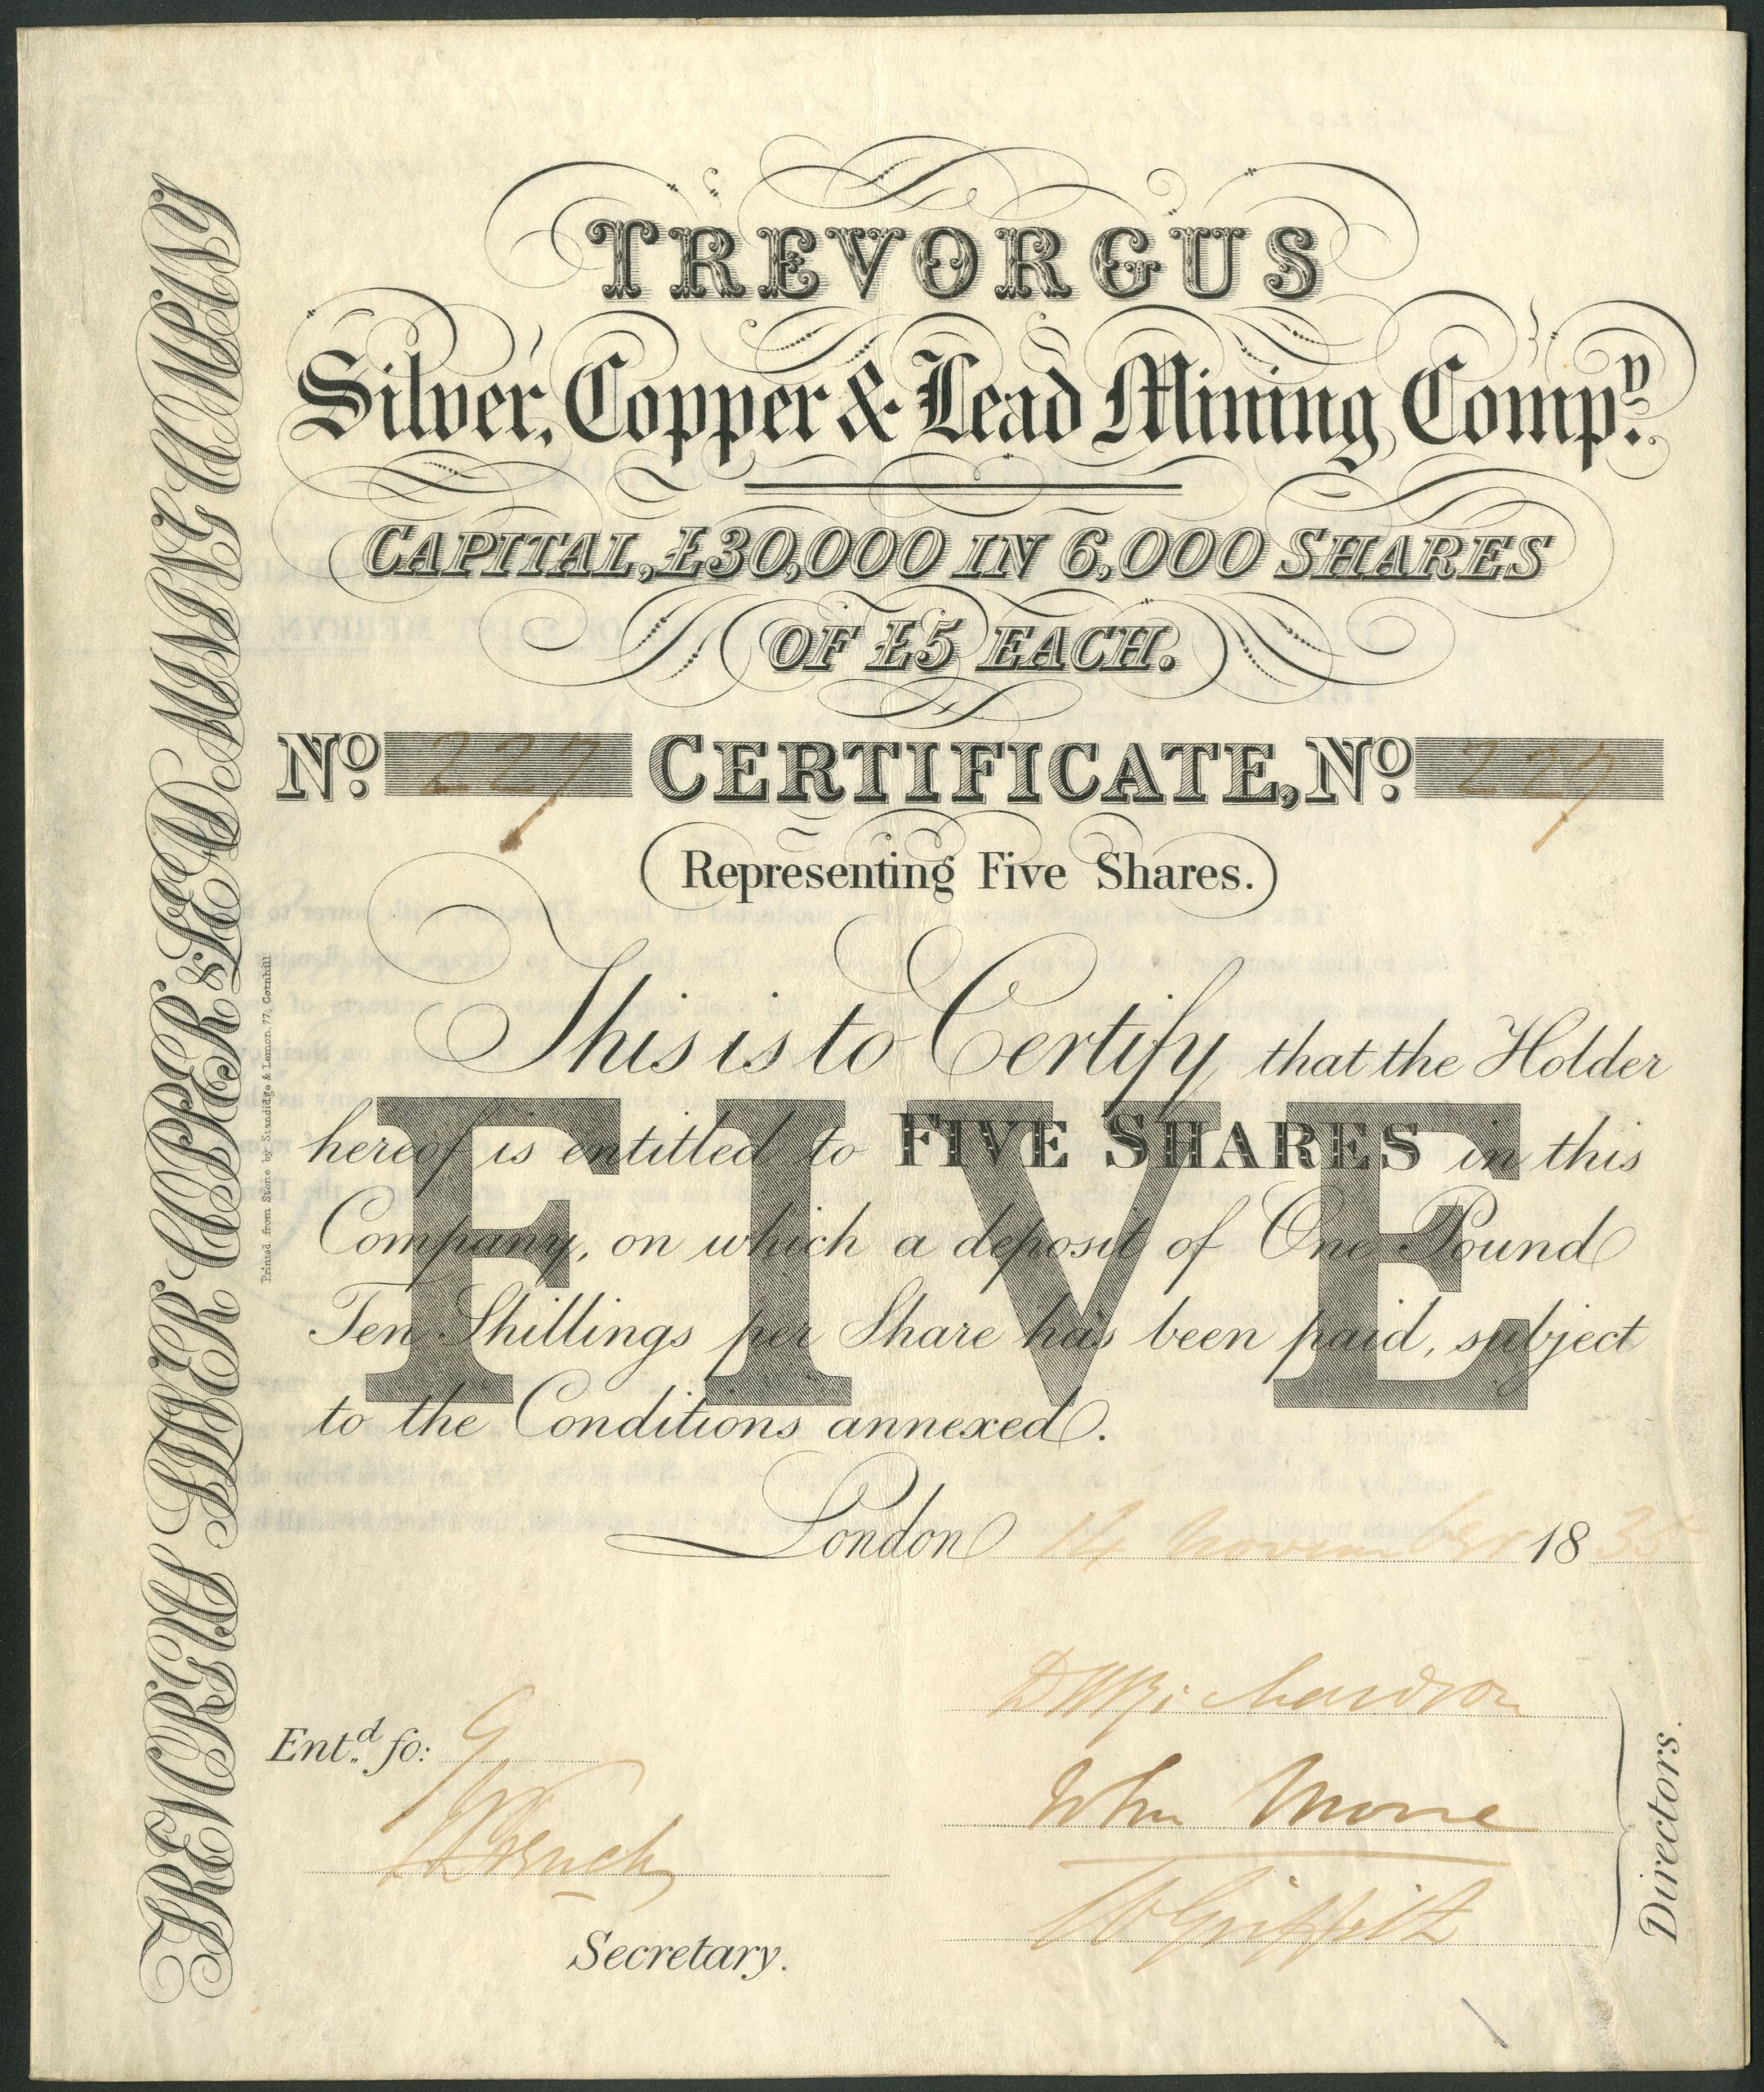 TREVORGUS
Silver, Copper & Lead Mining Compy.
CAPITAL, £30,000 IN 6,000 SHARES
OF £5 EACH.
No. 227 CERTIFICATE, No. 227
Representing Five Shares.
This is to Certify that the Holder
hereof is entitled to FIVE SHARES in this
Company, on which a deposit of One Pound
Ten Shillings per Share has been paid, subject
to the Conditions annexed.
FIVE
London 14 November 1835
Entd. fo: 9
Secretary.
Richardson
John
W Griffith
Directors.
TREVORGUS SILVER COPPER & LEAD MINING COMPANY
Printed from Stone by Standidge & Lemon, 77, Cornhill